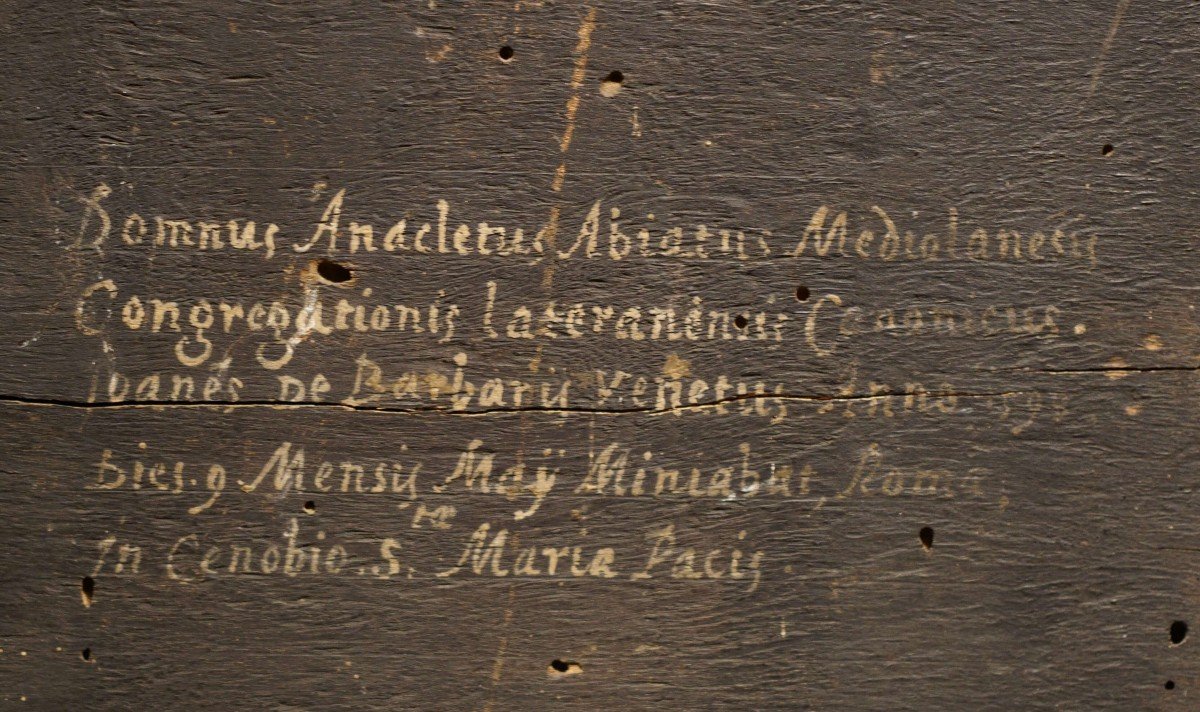 Domnus Anacletus Abiatus Mediolanesis
Congregationis lateranensis Canonicus.
Ioanes De Barbariis Venetus Anno
Dies. 9. Mensis Maÿ Miniabat Roma
tæ
in Cenobio. S. Maria Pacis.